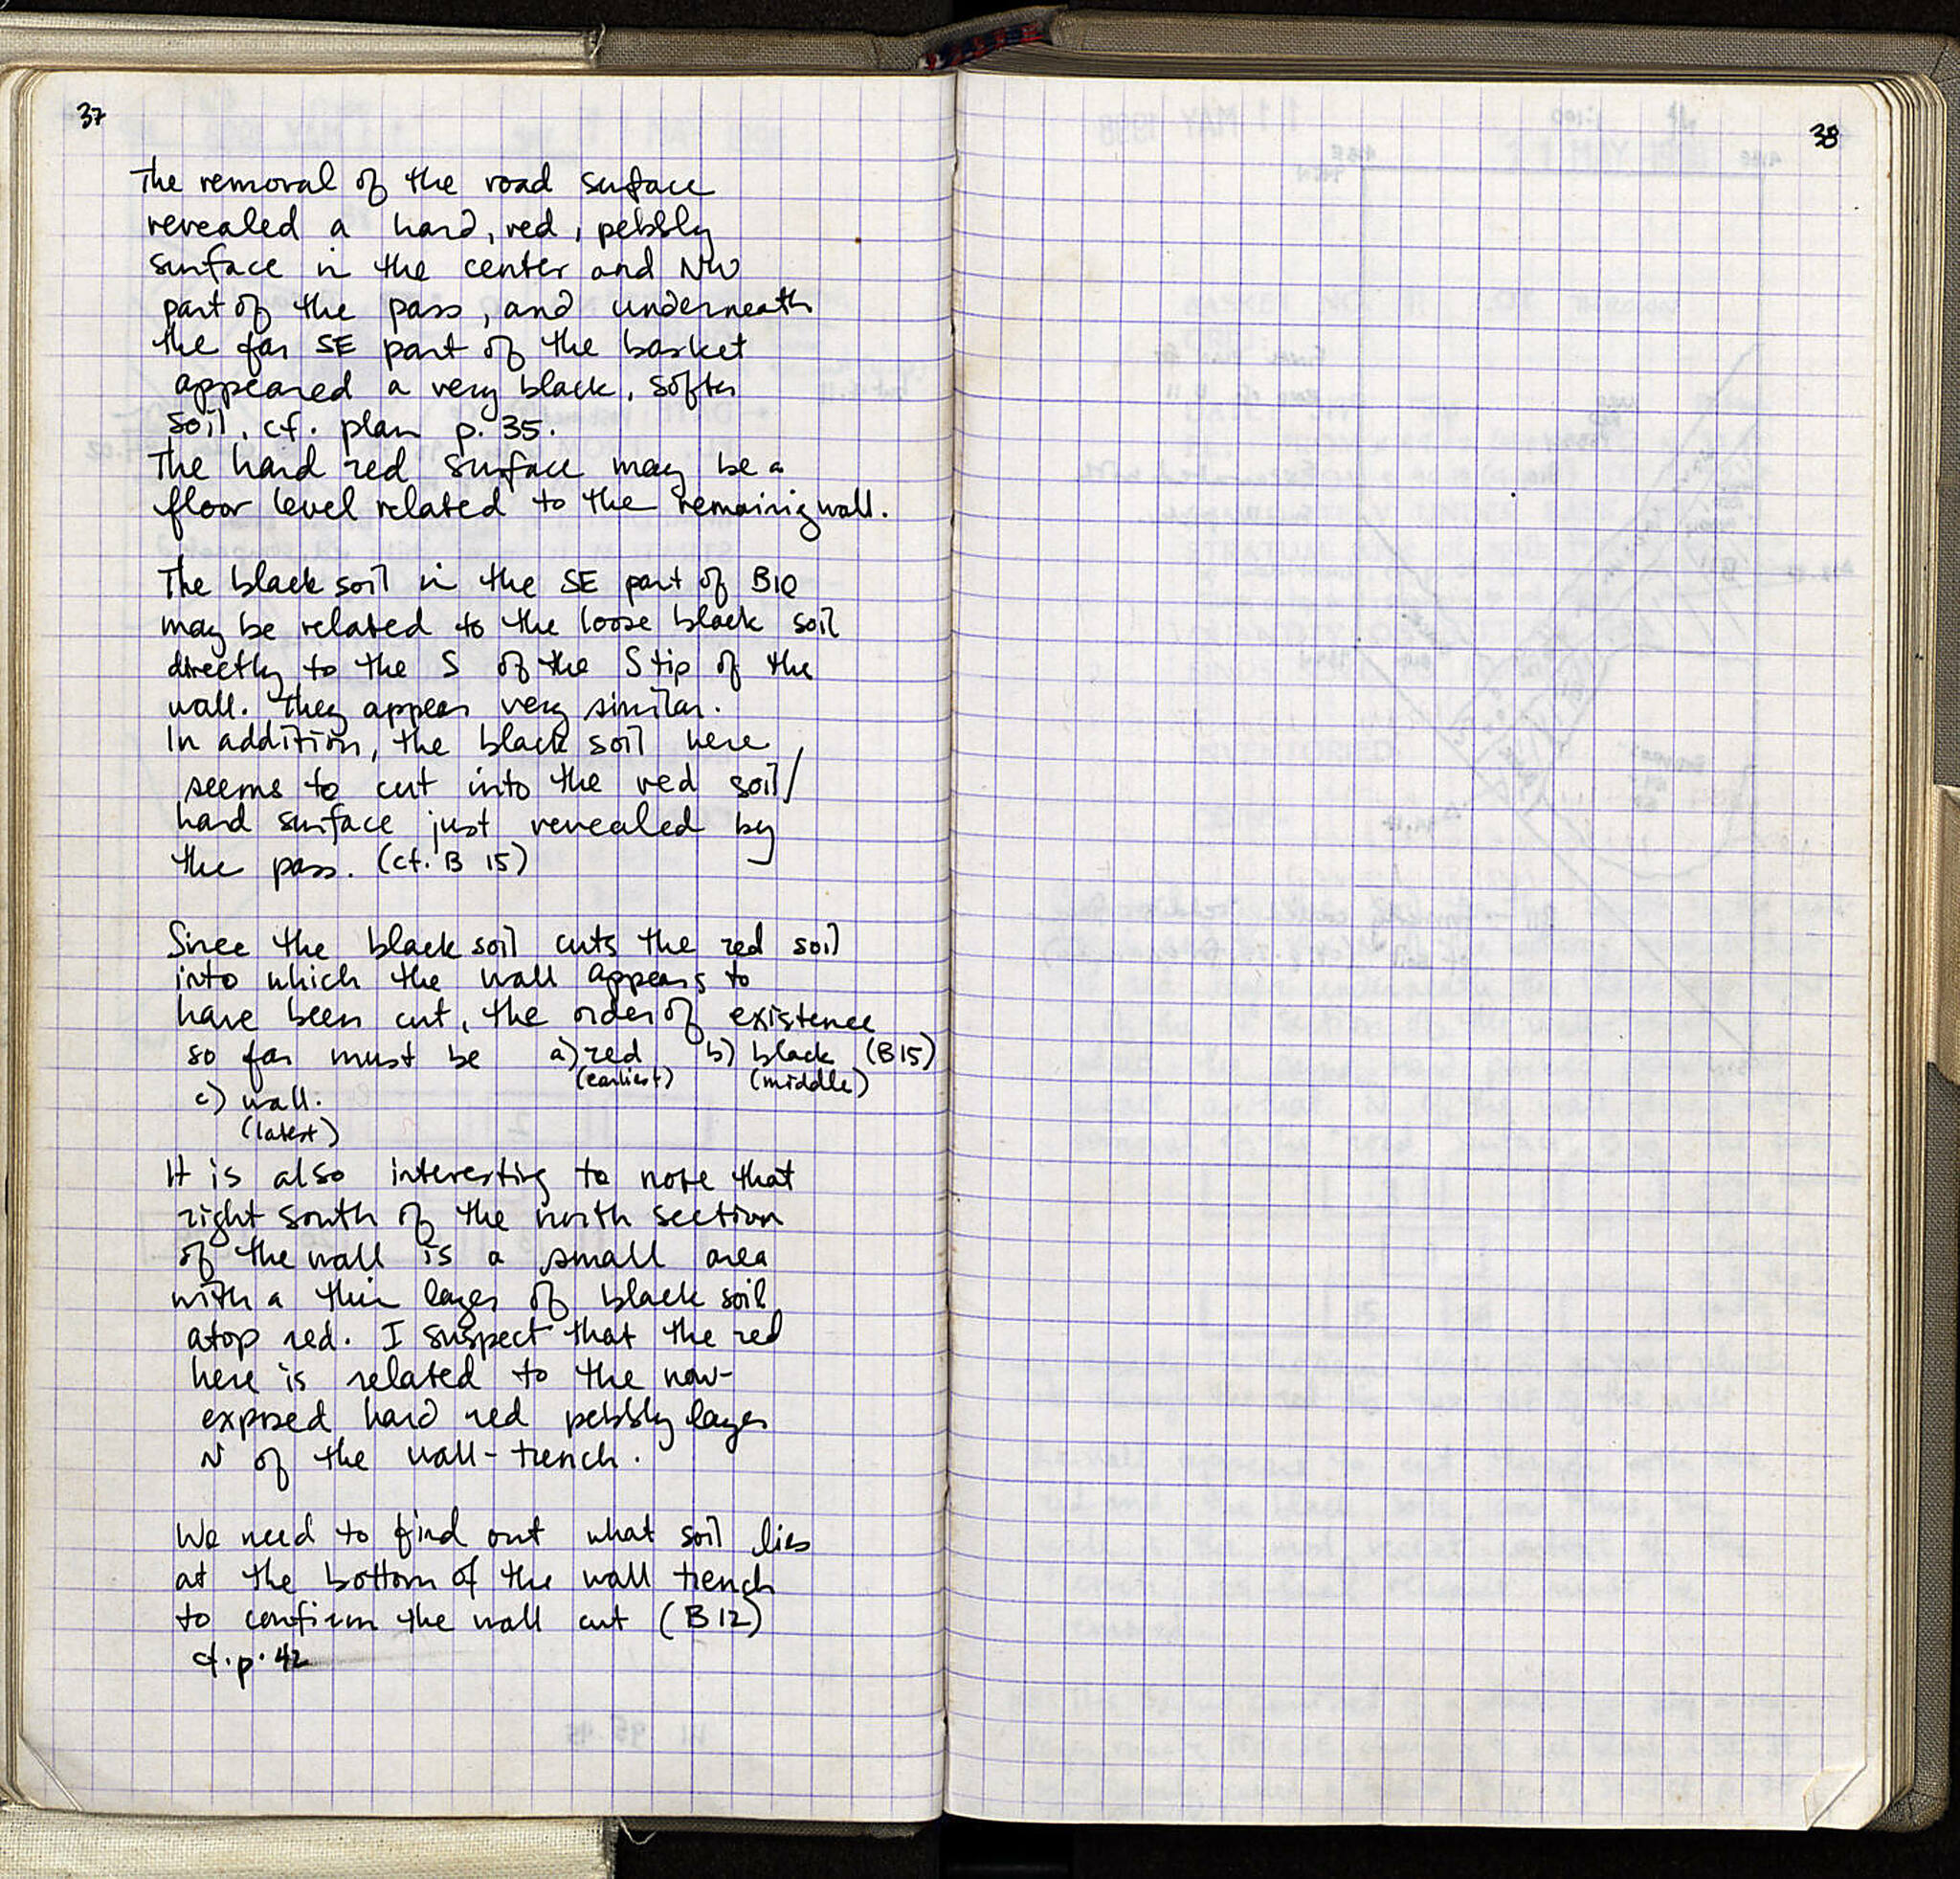 37
The removal of the road surface
revealed a hard, red, pebbly
surface in the center and NW
part of the pass, and underneath
the far SE part of the basket
appeared a very black, softer
soil, cf. plan p. 35.
The hard red surface may be a
floor level related to the remaining wall.
The black soil in the SE part of B10
may be related to the loose black soil
directly to the S of the S tip of the
wall. They appear very similar.
In addition, the black soil here
seems to cut into the red soil/
hard surface just revealed by
the pass. (cf. B 15)
Since the black soil cuts the red soil
into which the wall appears to
have been cut, the order of existence
so far must be a) red b) black (B15)
(earliest) (middle)
c) wall.
(latest)
It is also interesting to note that
right south of the north section
of the wall is a small area
with a thin layer of black soil
atop red. I suspect that the red
here is related to the now-
exposed hard red pebbly layer
N of the wall-trench.
We need to find out what soil lies
at the bottom of the wall trench
to confirm the wall cut (B12)
cf. p. 42
38